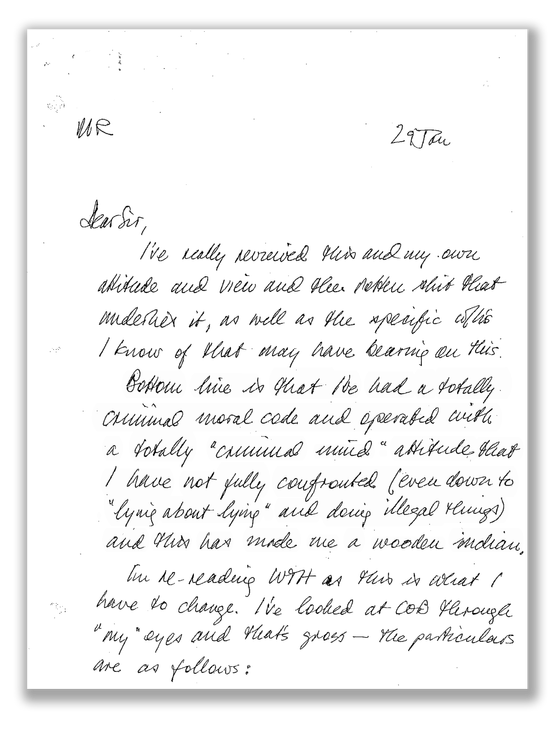 MR
29 Jan
Dear Sir,
I've really reviewed this and my own
attitude and view and the rotten shit that
underlies it, as well as the specific o/ws
I know of that may have bearing on this.
Bottom line is that I've had a totally
criminal moral code and operated with
a totally "criminal mind" attitude that
I have not fully confronted (even down to
"lying about lying" and doing illegal things)
and this has made me a wooden indian.
I'm re-reading WTH as this is what I
have to change. I've looked at COB through
"my" eyes and that's gross — the particulars
are as follows: